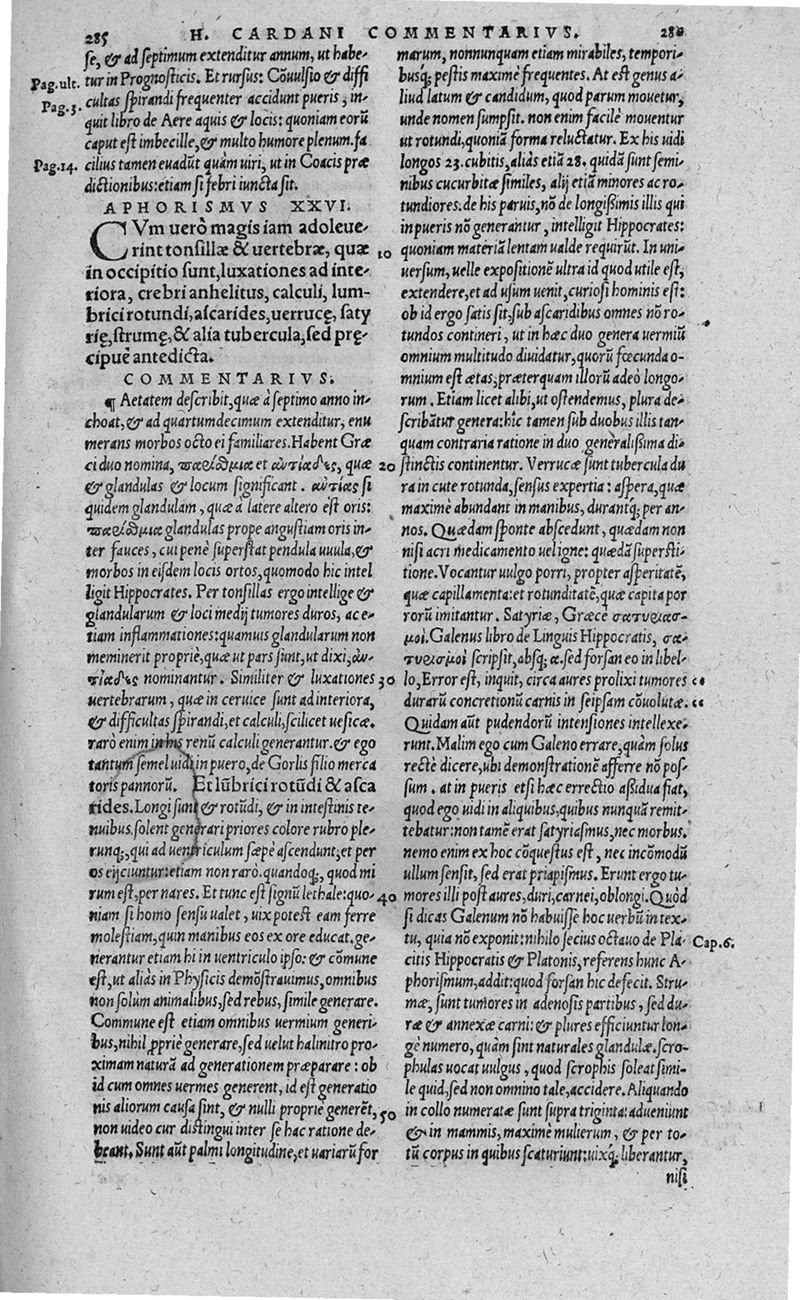 285 H. CARDANI COMMENTARIVS. 286
se, & ad septimum extenditur annum, ut habe-
Pag.ult. tur in Prognosticis. Et rursus: Cõuulsio & diffi
Pag.3. cultas spirandi frequenter accidunt pueris, in-
quit libro de Aere aquis & locis: quoniam eorũ
caput est imbecille, & multo humore plenum. fa
Pag.14. cilius tamen euadũt quàm uiri, ut in Coacis præ
dictionibus: etiam si febri iuncta sit.
APHORISMVS XXVI.
CVm uerò magis iam adoleue-
rint tonsillæ & uertebræ, quæ
in occipitio sunt, luxationes ad inte-
riora, crebri anhelitus, calculi, lum-
brici rotundi, ascarides, uerrucę, saty
rię, strumę, & alia tubercula, sed prę-
cipuè antedicta.
COMMENTARIVS.
¶ Aetatem describit, quæ à septimo anno in-
choat, & ad quartumdecimum extenditur, enu
merans morbos octo ei familiares. Habent Græ
ci duo nomina, παρίσθμια et ἀντιάδες, quæ
& glandulas & locum significant. ἀντίας si
quidem glandulam, quæ à latere altero est oris:
παρίσθμια glandulas prope angustiam oris in-
ter fauces, cui penè superstat pendula uuula, &
morbos in eisdem locis ortos, quomodo hic intel
ligit Hippocrates. Per tonsillas ergo intellige &
glandularum & loci medij tumores duros, ac e-
tiam inflammationes: quamuis glandularum non
meminerit propriè, quæ ut pars sunt, ut dixi, ἀν-
τιάδες nominantur. Similiter & luxationes
uertebrarum, quæ in ceruice sunt ad interiora,
& difficultas spirandi, et calculi, scilicet uesicæ.
rarò enim in his renũ calculi generantur. & ego
tantum semel uidi in puero, de Gorlis filio merca
toris pannorũ. Et lũbrici rotũdi & asca
rides. Longi sunt & rotũdi, & in intestinis te-
nuibus. solent generari priores colore rubro ple-
runq;, qui ad uentriculum sæpè ascendunt, et per
os eijciuntur: etiam non rarò. quandoq;, quod mi
rum est, per nares. Et tunc est signũ lethale: quo-
niam si homo sensu ualet, uix potest eam ferre
molestiam, quin manibus eos ex ore educat. ge-
nerantur etiam hi in uentriculo ipso: & cõmune
est, ut aliàs in Physicis demõstrauimus, omnibus
non solùm animalibus, sed rebus, simile generare.
Commune est etiam omnibus uermium generi-
bus, nihil ꝓprie generare, sed uelut halinitro pro-
ximam naturã ad generationem præparare: ob
id cum omnes uermes generent, id est generatio
nis aliorum causa sint, & nulli proprie generẽt,
non uideo cur distingui inter se hac ratione de-
beant. Sunt aũt palmi longitudine, et uariarũ for
marum, nonnunquam etiam mirabiles, tempori-
busq; pestis maximè frequentes. At est genus a-
liud latum & candidum, quod parum mouetur,
unde nomen sumpsit. non enim facilè mouentur
ut rotundi, quoniã forma reluctatur. Ex his uidi
longos 23. cubitis, aliàs etiã 28. quidã sunt semi-
nibus cucurbitæ similes, alij etiã minores ac ro-
tundiores. de his paruis, nõ de longißimis illis qui
in pueris nõ generantur, intelligit Hippocrates:
10 quoniam materiã lentam ualde requirũt. In uni-
uersum, uelle expositionẽ ultra id quod utile est,
extendere, et ad usum uenit, curiosi hominis est:
ob id ergo satis sit, sub ascaridibus omnes nõ ro-
tundos contineri, ut in hæc duo genera uermiũ
omnium multitudo diuidatur, quorũ fœcunda o-
mnium est ætas, præterquam illorũ adeò longo-
rum. Etiam licet alibi, ut ostendemus, plura de-
scribãtur genera: hic tamen sub duobus illis tan-
quam contraria ratione in duo generalißima di-
20 stinctis continentur. Verrucæ sunt tubercula du
ra in cute rotunda, sensus expertia: aspera, quæ
maximè abundant in manibus, durantq; per an-
nos. Quædam sponte abscedunt, quædam non
nisi acri medicamento uel igne: quædã supersti-
tione. Vocantur uulgo porri, propter asperitatẽ,
quæ capillamenta: et rotunditatẽ, quæ capita por
rorũ imitantur. Satyriæ, Græcè σατυριασ-
μοί. Galenus libro de Linguis Hippocratis, σα-
τυρισμοί scripsit, absq; α. sed forsan eo in libel-
30 lo, Error est, inquit, circa aures prolixi tumores
durarũ concretionũ carnis in seipsam cõuolutæ.
Quidam aũt pudendorũ intensiones intellexe-
runt. Malim ego cum Galeno errare, quàm solus
rectè dicere, ubi demonstrationẽ afferre nõ pos-
sum. at in pueris etsi hæc errectio aßidua fiat,
quod ego uidi in aliquibus, quibus nunquã remit-
tebatur: non tamẽ erat satyriasmus, nec morbus.
nemo enim ex hoc cõquestus est, nec incõmodũ
ullum sensit, sed erat priapismus. Erunt ergo tu-
40 mores illi post aures, duri, carnei, oblongi. Quòd
si dicas Galenum nõ habuisse hoc uerbũ in tex-
tu, quia nõ exponit: nihilo secius octauo de Pla- Cap.6.
citis Hippocratis & Platonis, referens hunc A-
phorismum, addit: quod forsan hic defecit. Stru-
mæ, sunt tumores in adenosis partibus, sed du-
ræ & annexæ carni: & plures efficiuntur lon-
gè numero, quàm sint naturales glandulæ. scro-
phulas uocat uulgus, quod scrophis soleat simi-
le quid, sed non omnino tale, accidere. Aliquando
50 in collo numeratæ sunt supra triginta: adueniunt
& in mammis, maximè mulierum, & per to-
tũ corpus in quibus scaturiunt: uixq; liberantur,
nisi